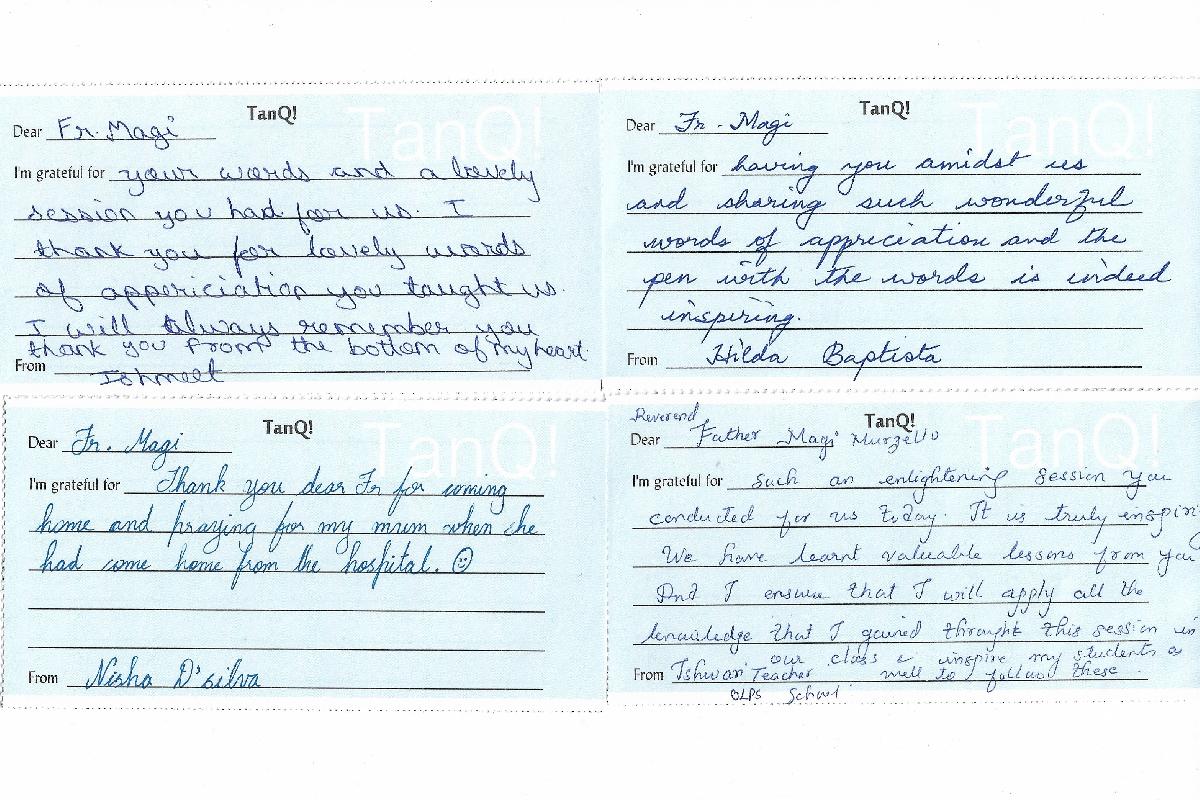 TanQ!
Dear Fr. Magi
I'm grateful for your words and a lovely
session you had for us. I
thank you for lovely words
of appericiation you taught us.
I will always remember you
thank you from the bottom of my heart.
From Ishmeet
TanQ!
Dear Fr. Magi
I'm grateful for having you amidst us
and sharing such wonderful
words of appreciation and the
pen with the words is indeed
inspiring.
From Hilda Baptista
TanQ!
Dear Fr. Magi
I'm grateful for Thank you dear Fr for coming
home and praying for my mum when she
had come home from the hospital. ☺
From Nisha D'silva
TanQ!
Reverend
Dear Father Magi Murzello
I'm grateful for such an enlightening session you
conducted for us today. It us truly inspiri
We have learnt valuable lessons from you
And I ensure that I will apply all the
knowledge that I gained throught this session in
our class & inspire my students as
From Ishwari Teacher well to follow these.
OLPS School